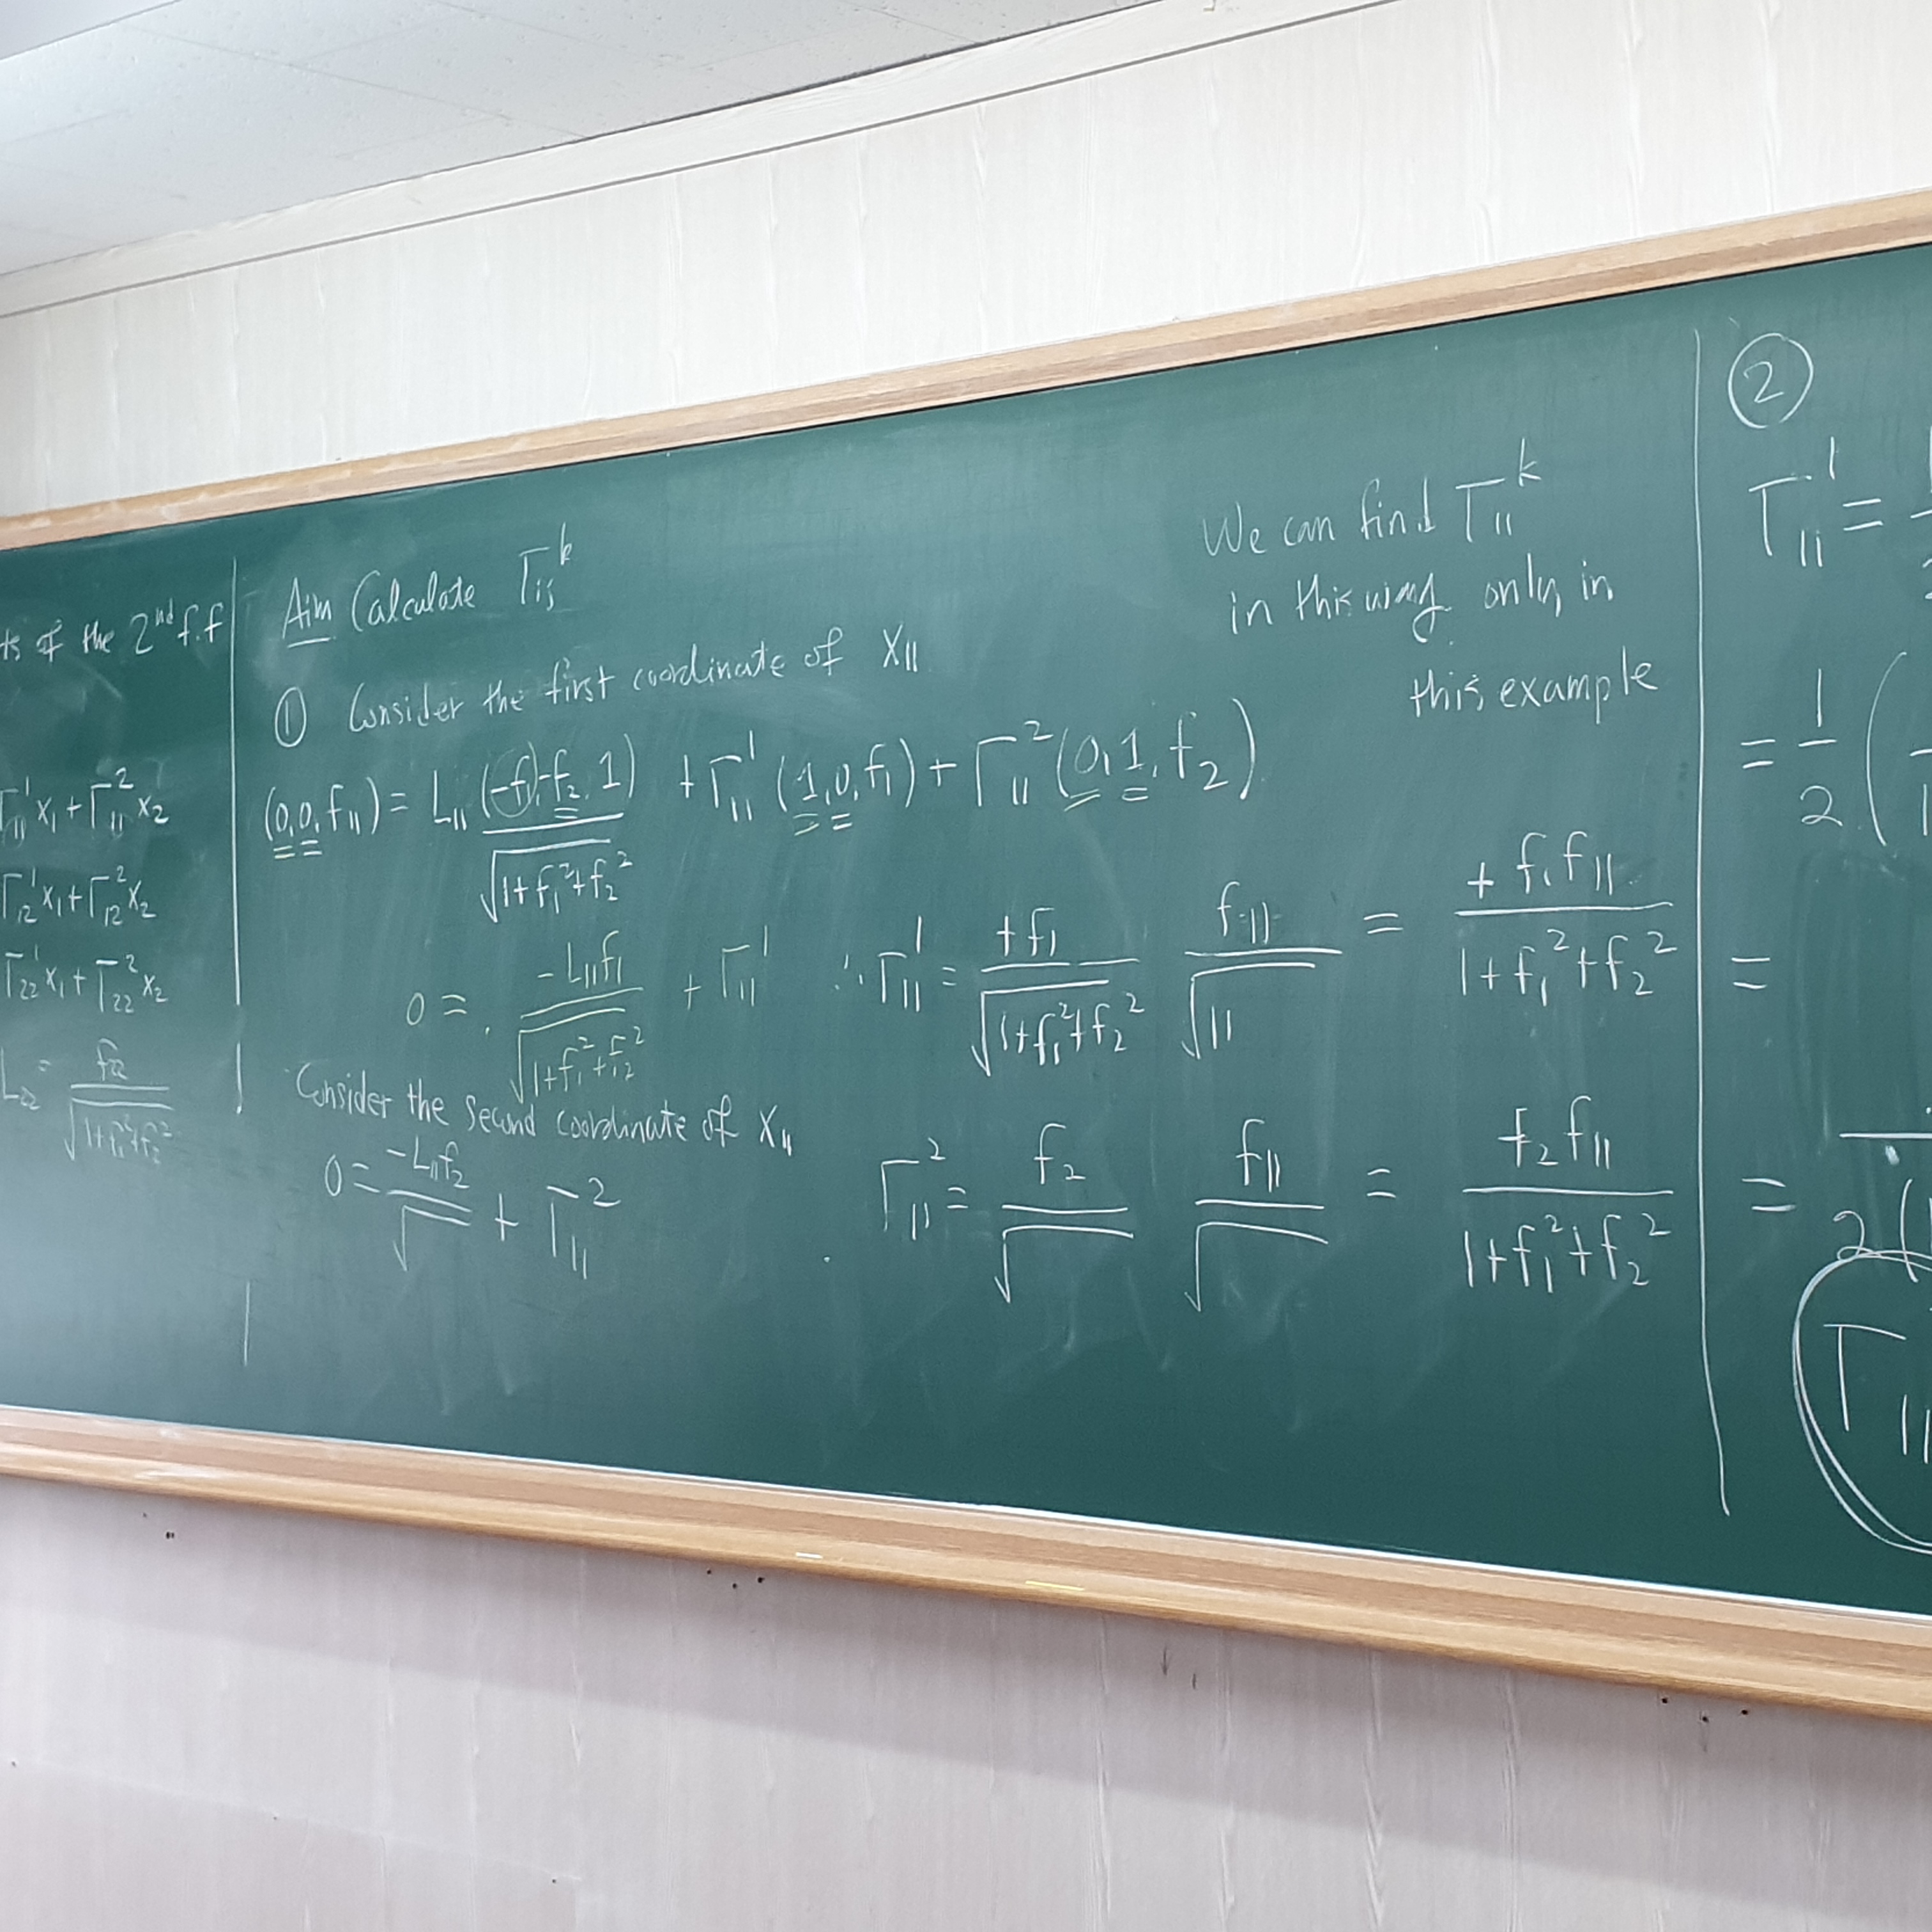 ts of the 2nd f.f
Γ₁₁¹x₁ + Γ₁₁²x₂
Γ₁₂¹x₁ + Γ₁₂²x₂
Γ₂₂¹x₁ + Γ₂₂²x₂
L₂₂ = f₂₂ / √(1+f₁²+f₂²)
Aim Calculate Γᵢⱼᵏ
① Consider the first coordinate of x₁₁
(0,0,f₁₁) = L₁₁ (-f₁,-f₂,1) / √(1+f₁²+f₂²) + Γ₁₁¹ (1,0,f₁) + Γ₁₁² (0,1,f₂)
0 = -L₁₁f₁ / √(1+f₁²+f₂²) + Γ₁₁¹ ∴ Γ₁₁¹ = +f₁ / √(1+f₁²+f₂²) f₁₁ / √11 = +f₁f₁₁ / 1+f₁²+f₂²
Consider the second coordinate of x₁₁
0 = -L₁₁f₂ / √ + Γ₁₁² Γ₁₁² = f₂ / √ f₁₁ / √ = f₂f₁₁ / 1+f₁²+f₂²
We can find Γ₁₁ᵏ
in this way only in
this example
②
Γ₁₁¹ =
= 1/2 (
=
= 2(
Γ₁₁